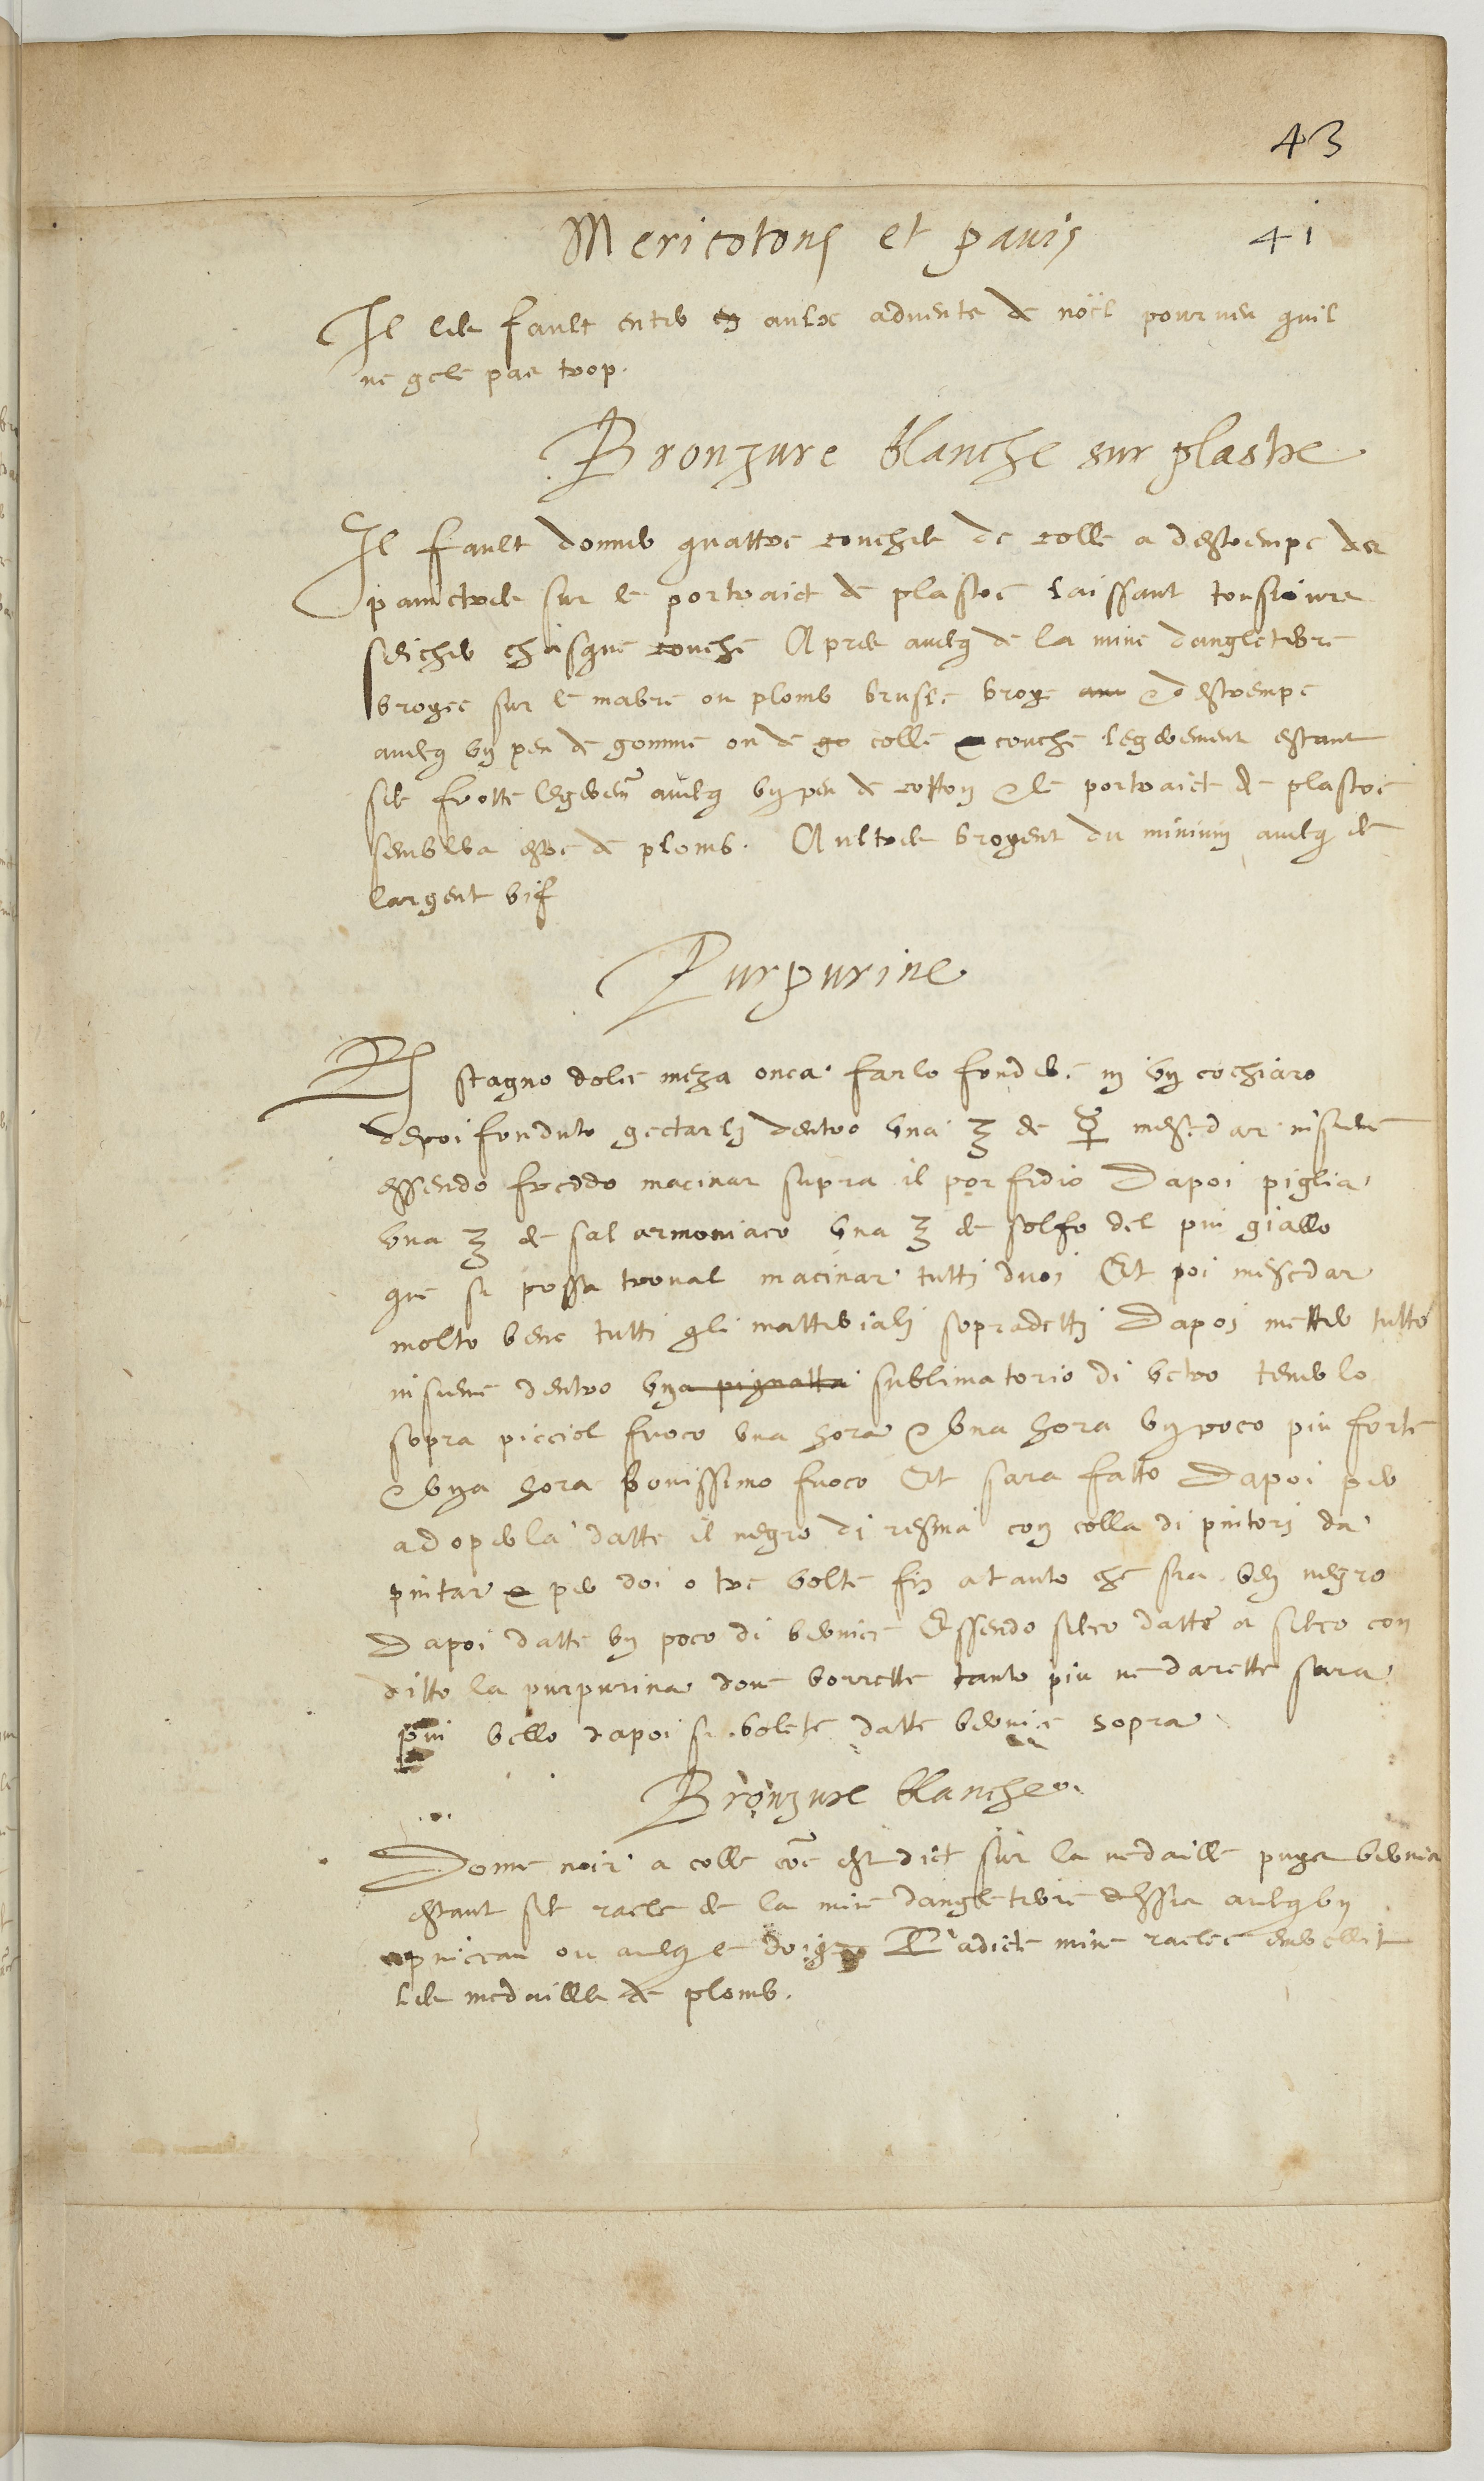 43
Mericotons et pavis 41
Il les fault enter en aulx advents de noël pourveu quil
ne gele pas trop.
Bronzure blanche sur plastre
Il fault donner quattre couches de colle a destrempe des
painctres sur le portraict de plastre laissant tousjours
seicher chasque couche Apres avecq de la mine dangleterre
broyee sur le mabre ou plomb brusle broye & destrempe
avecq un peu de gomme ou de go colle & couche legerement estant
sec frotte legerem avecq un peu de cotton & le portraict de plastre
semblera estre de plomb. Aultres broyent du minium avecq de
largent vif
Purpurine
℞ stagno dolce meza onca farlo fondere in un cochiaro
depoi fonduto gectarli dentro una ʒ de ☿ mescdar insieme
essendo freddo macinar supra il porfidio Dapoi piglia
una ʒ de sal armoniaco una ʒ de solfo del piu giallo
que se possa troval macinar tutti duoi Et poi mescdar
molto bene tutti gli matteriali sopradetti Dapoi metter tutto
insieme dentro una pignatta sublimatorio di vetro tenerlo
sopra picciol fuoco una hora & una hora un poco piu forte
& una hora bonissimo fuoco Et sara fatto Dapoi per
adoperla datte il negro di resma con colla di pintori da
pintar & per doi o tre volte fin atanto che sia ben negro
Dapoi datte un poco di vernice Essendo secco datte a secco con
ditto la purpurina dove vorrette tanto piu ne darette sara
piu bello dapoi se volete datte vernice sopra
Bronzure blanche
Donne noir a colle coe est dict sur la medaille puys vernis
estant sec racle de la mine dangleterre dessus avecq un
pniceau ou avecq le doigt Ladicte mine raclee embellit
les medailles de plomb.